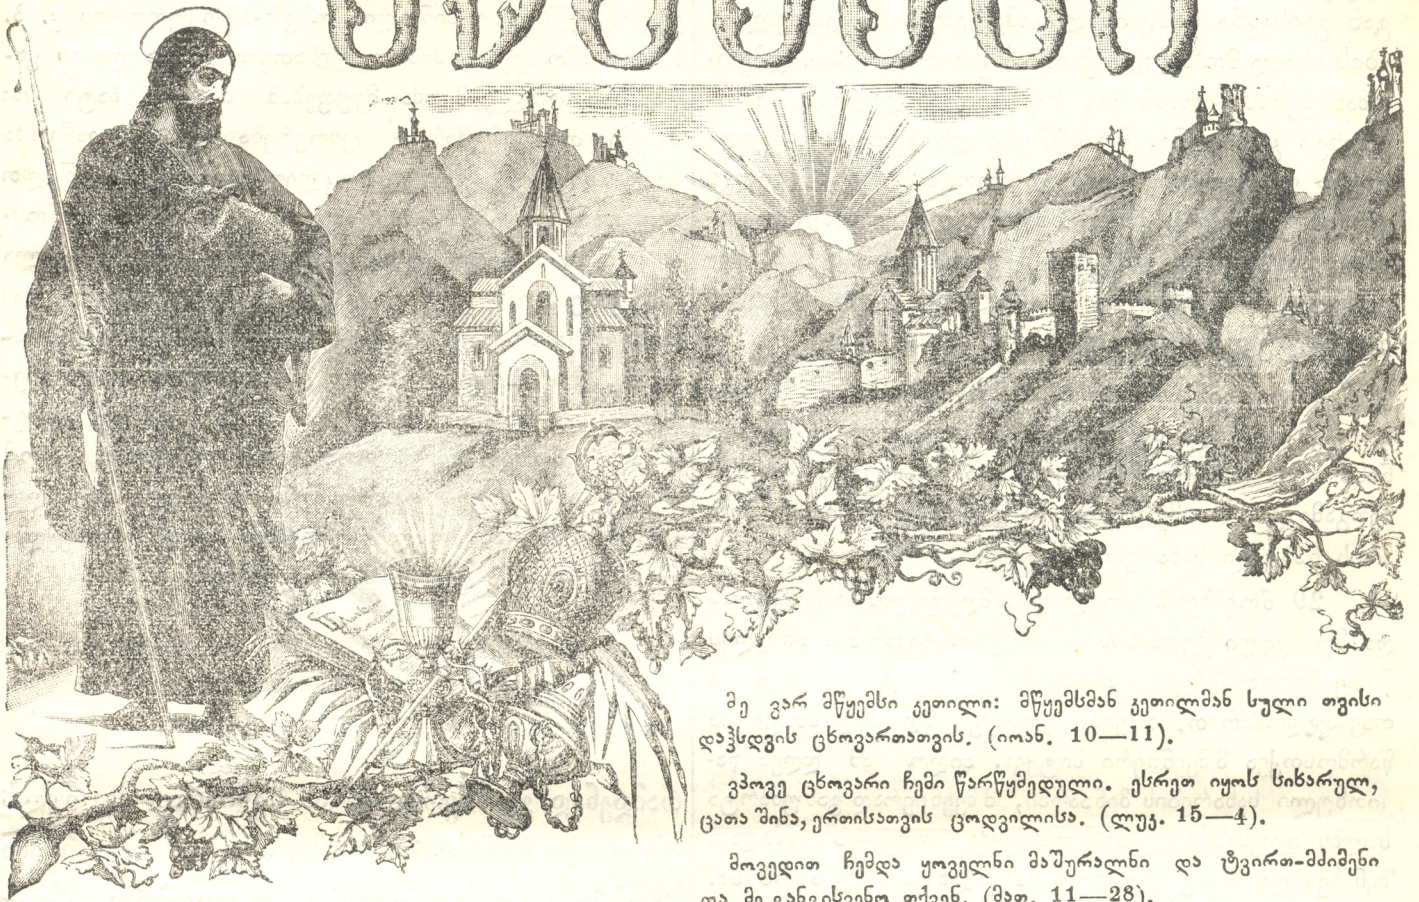 მე ვარ მწყემსი კეთილი: მწყემსმან კეთილმან სული თვისი
დაჰსდვის ცხოვართათვის. (იოან. 10—11).
ვპოვე ცხოვარი ჩემი წარწყმედული. ესრეთ იყოს სიხარულ,
ცათა შინა, ერთისათვის ცოდვილისა. (ლუკ. 15—4).
მოვედით ჩემდა ყოველნი მაშურალნი და ტვირთ-მძიმენი
და მე განგისვენო თქვენ. (მათ. 11—28).